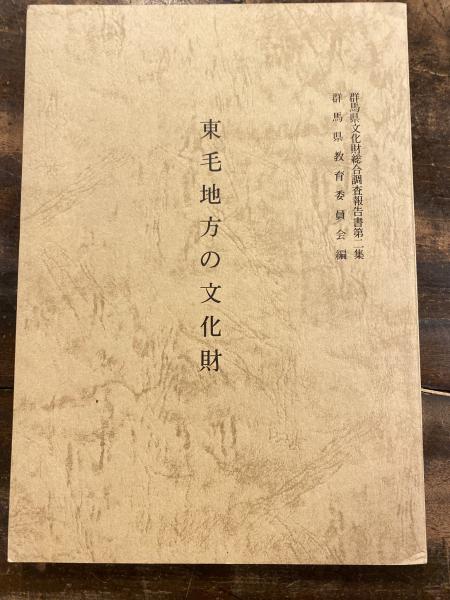 群馬県文化財総合調査報告書第二集
群馬県教育委員会編
東毛地方の文化財